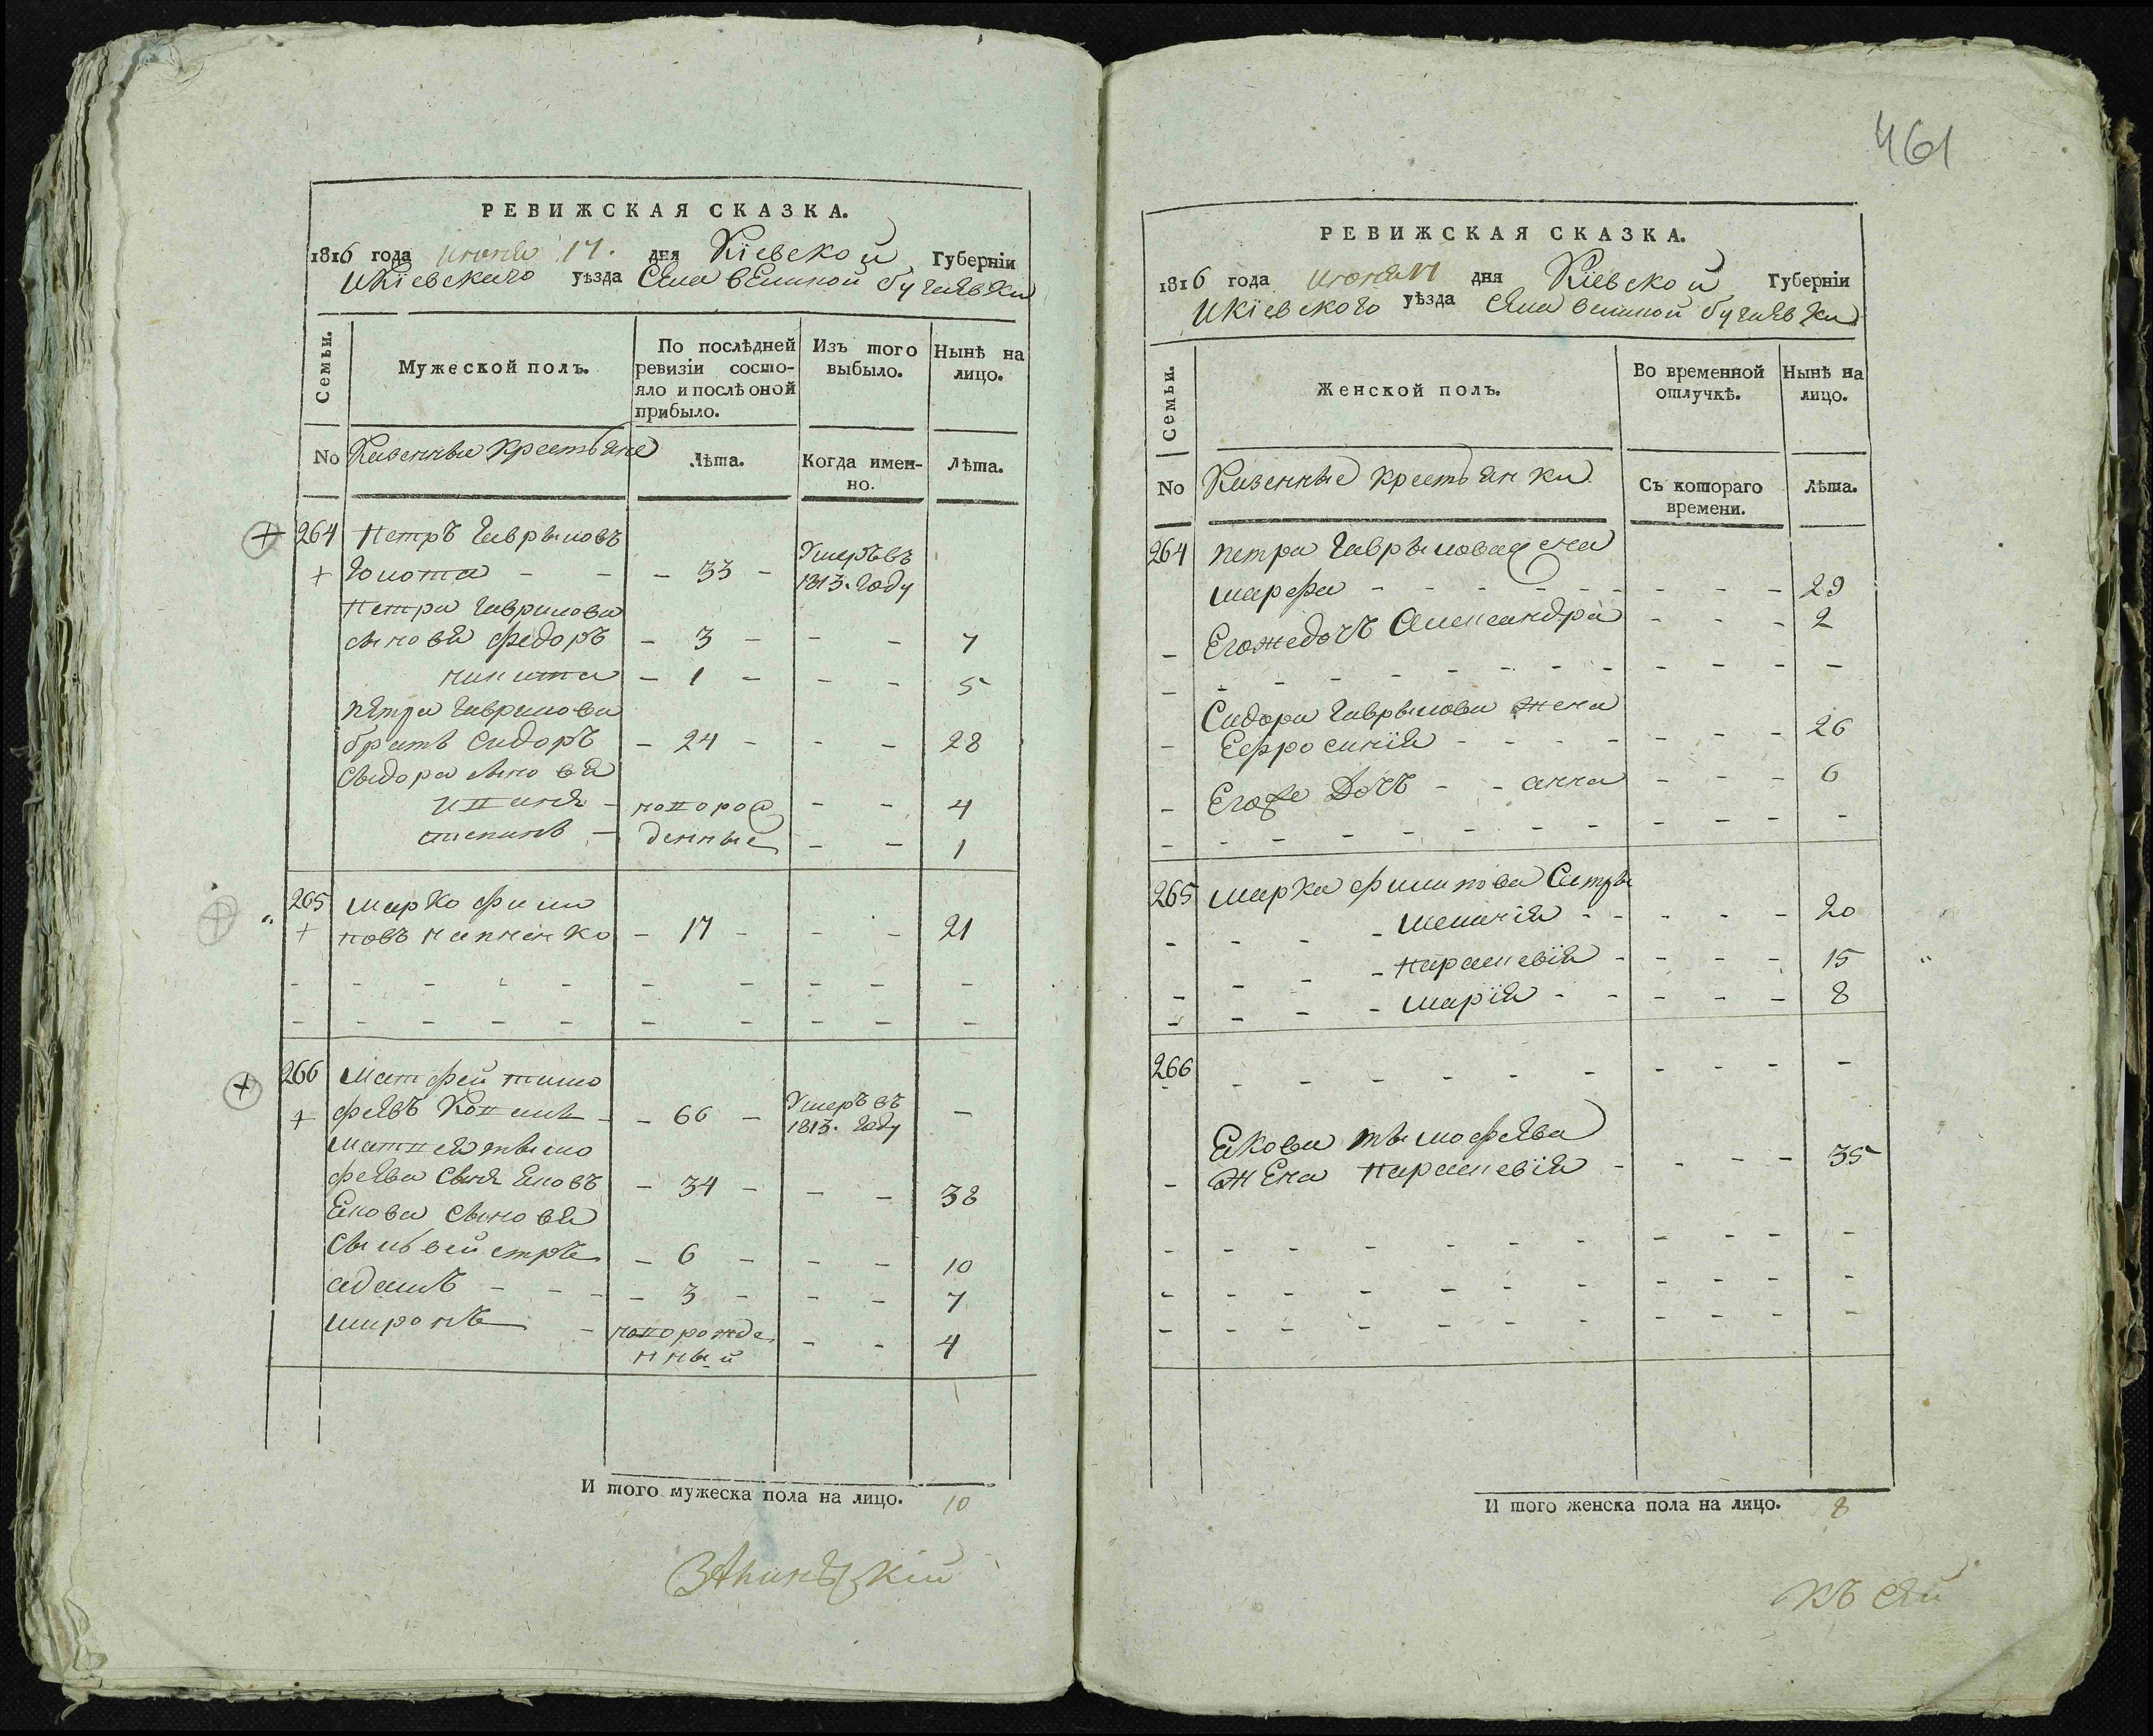 РЕВИЖСКАЯ СКАЗКА.
1816 года июня 17. дня Кіевской Губерніи
И Кіевскаго уѣзда Села великой бугаевки
Семьи.
Мужеской полъ.
По послѣдней ревизіи состояло и послѣ оной прибыло.
Изъ того выбыло.
Нынѣ на лицо.
No Казенные крестьяне
Лѣта.
Когда именно.
Лѣта.
264 Петръ Гаврыловъ
Голота - - - 33 - Умеръ въ 1813. году
Петра Гаврилова
сыновя Федоръ - 3 - - - 7
никита - 1 - - - 5
Петра Гаврилова
братъ Сидоръ - 24 - - - 28
Сыдора сыновя
- новорож - - 4
степанъ - денные - - 1
265 Марко Фили
повъ - 17 - - - 21
266 Матфей тимо
феевъ - 66 - Умеръ въ 1813. году -
Матвея тымо
феева сынъ яковъ - 34 - - - 38
Якова сыновя
Сыльвестръ - 6 - - - 10
адамъ - - - - 3 - - - 7
миронъ - новорожде
нный - - 4
И того мужеска пола на лицо. 10
461
РЕВИЖСКАЯ СКАЗКА.
1816 года июня 17 дня Кіевской Губерніи
И Кіевского уѣзда Села великой бугаевки
Семьи.
Женской полъ.
Во временной отлучкѣ.
Нынѣ на лицо.
No Казенные крестьянки
Съ котораго времени.
Лѣта.
264 Петра Гаврылова жена
марфа - - - - 29
Егожедочъ Александра - - - 2
Сидора Гаврылова жена
Ефросинія - - - - 26
Егоже Дочъ - - анна - - - 6
265 Марка Филипова Сестры
меланія - - - - 20
Параскевія - - - - 15
Марія - - - - 8
266 - - - - - -
Якова тымофеева
жена Параскевія - - - - 35
И того женска пола на лицо. 8
къ сей